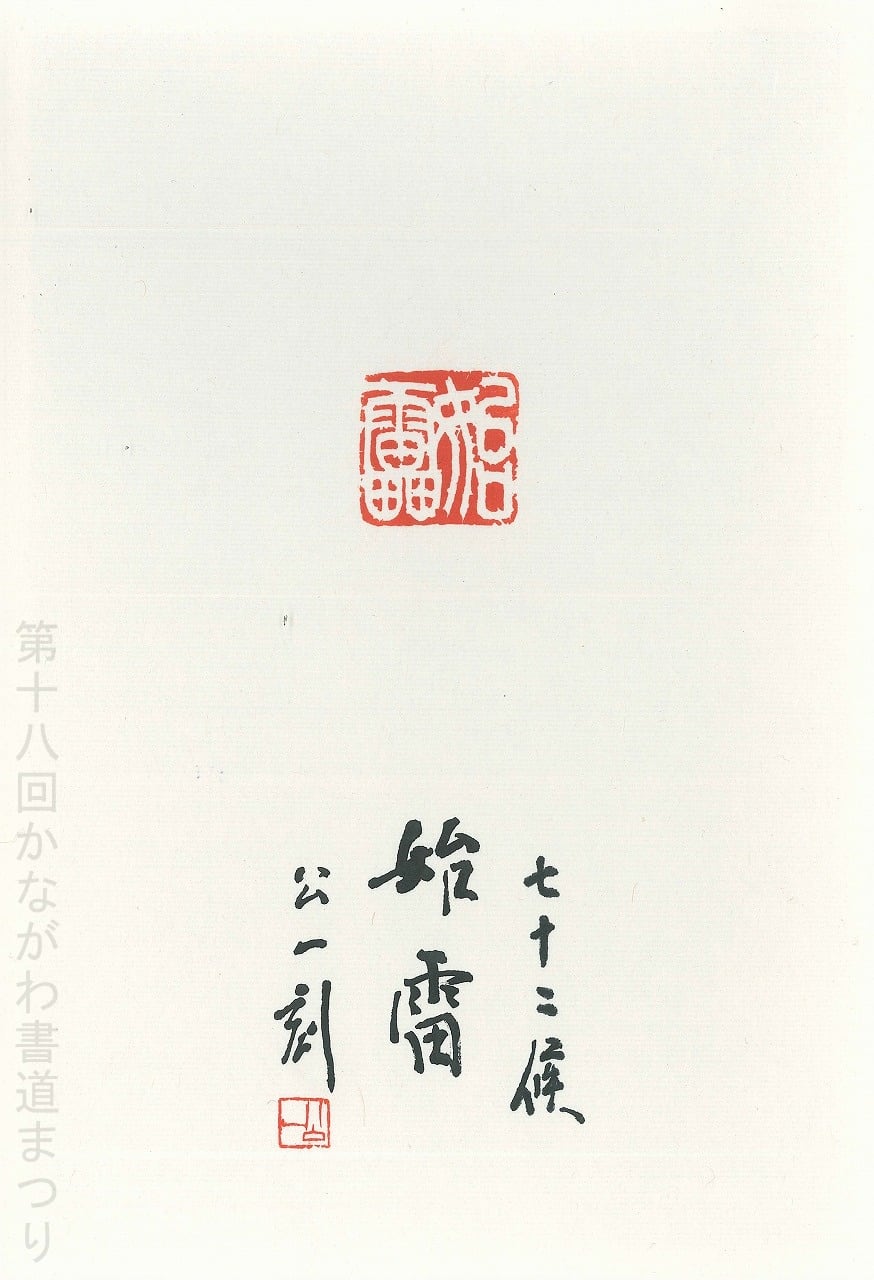 始雷
七十二候
始雷
公一刻
公一
第十八回かながわ書道まつり